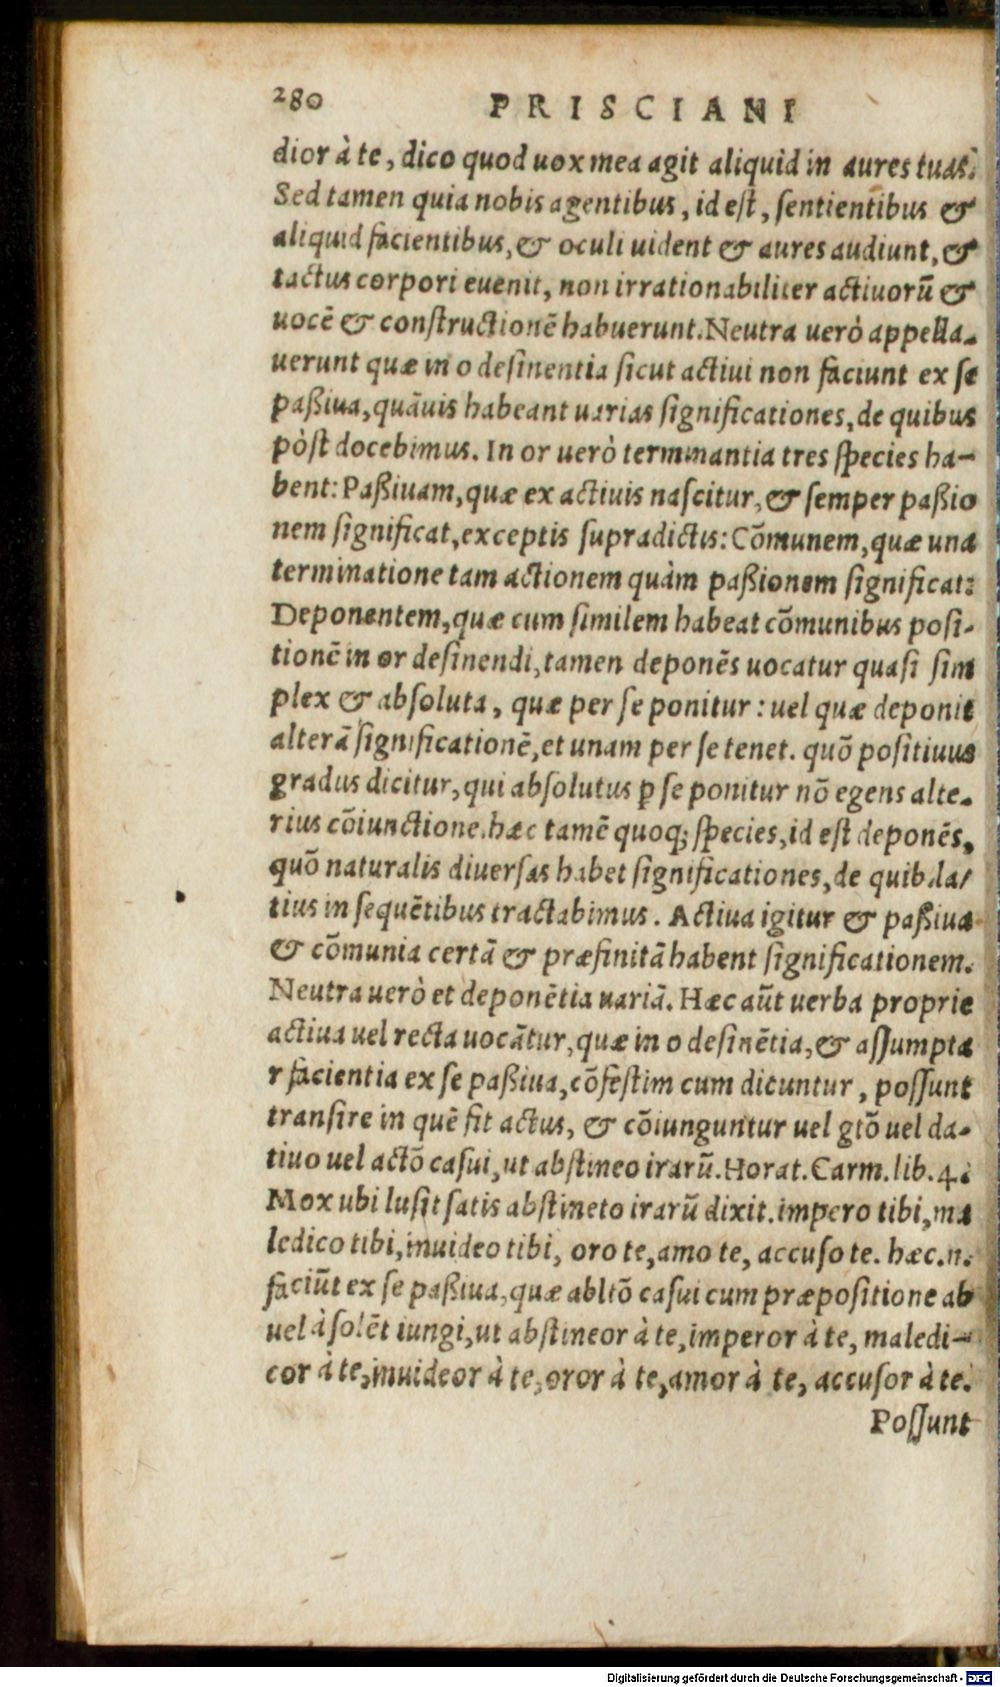 280 PRISCIANI
dior à te, dico quod uox mea agit aliquid in aures tuas.
Sed tamen quia nobis agentibus, id est, sentientibus &
aliquid facientibus, & oculi uident & aures audiunt, &
tactus corpori euenit, non irrationabiliter actiuorũ &
uocẽ & constructionẽ habuerunt. Neutra uerò appella-
uerunt quæ in o desinentia sicut actiui non faciunt ex se
paßiua, quãuis habeant uarias significationes, de quibus
pòst docebimus. In or uerò terminantia tres species ha-
bent: Paßiuam, quæ ex actiuis nascitur, & semper paßio
nem significat, exceptis supradictis: Cõmunem, quæ una
terminatione tam actionem quàm paßionem significat:
Deponentem, quæ cum similem habeat cõmunibus posi-
tionẽ in or desinendi, tamen deponẽs uocatur quasi sim
plex & absoluta, quæ per se ponitur: uel quæ deponit
alterã significationẽ, et unam per se tenet. quõ positiuus
gradus dicitur, qui absolutus ꝑ se ponitur nõ egens alte-
rius cõiunctione. hæc tamẽ quoq; species, id est deponẽs,
quõ naturalis diuersas habet significationes, de quib. la/
tius in sequẽtibus tractabimus. Actiua igitur & paßiua
& cõmunia certã & præfinitã habent significationem.
Neutra uerò et deponẽtia uariã. Hæc aũt uerba proprie
actiua uel recta uocãtur, quæ in o desinẽtia, & assumpta
r facientia ex se paßiua, cõfestim cum dicuntur, possunt
transire in quẽ fit actus, & cõiunguntur uel gtõ uel da-
tiuo uel actõ casui, ut abstineo irarũ. Horat. Carm. lib. 4.
Mox ubi lusit satis abstineto irarũ dixit. impero tibi, ma
ledico tibi, inuideo tibi, oro te, amo te, accuso te. hæc .n.
faciũt ex se paßiua, quæ abltõ casui cum præpositione ab
uel à solẽt iungi, ut abstineor à te, imperor à te, maledi-
cor à te, inuideor à te, oror à te, amor à te, accusor à te.
Possunt
Digitalisierung gefördert durch die Deutsche Forschungsgemeinschaft - DFG